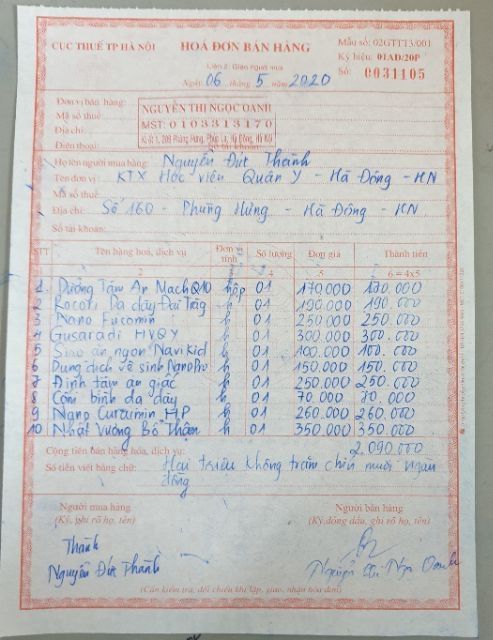 CỤC THUẾ TP HÀ NỘI
HOÁ ĐƠN BÁN HÀNG
Mẫu số: 02GTTT3/001
Liên 2: Giao người mua
Ký hiệu: 01AD/20P
Ngày 06 tháng 5 năm 2020
Số: 0031105
Đơn vị bán hàng:
NGUYỄN THỊ NGỌC OANH
Mã số thuế:
MST: 0103313170
Địa chỉ
Kiốt 1, 209 Phùng Hưng, Phúc La, Hà Đông, Hà Nội
Điện thoại
Số tài khoản:
Họ tên người mua hàng: Nguyễn Đức Thành
Tên đơn vị: KTX Học viện Quân Y - Hà Đông - HN
Mã số thuế:
Địa chỉ: Số 160 - Phùng Hưng - Hà Đông - HN
Số tài khoản:
STT Tên hàng hoá, dịch vụ Đơn vị tính Số lượng Đơn giá Thành tiền
1 2 3 4 5 6 = 4x5
1 Dưỡng Tâm An Mạch Q10 hộp 01 170.000 170.000
2 Rocori Dạ dày Đại Tràng h 01 190.000 190.000
3 Nano Fucomin h 01 250.000 250.000
4 Gusaradi HVQY h 01 300.000 300.000
5 Siro ăn ngon Navikid h 01 100.000 100.000
6 Dung dịch vệ sinh NanoPro h 01 150.000 150.000
7 Định tâm an giấc h 01 250.000 250.000
8 Cốm bình dạ dày h 01 70.000 70.000
9 Nano Curcumin HP h 01 260.000 260.000
10 Nhật Vương Bổ Thận h 01 350.000 350.000
Cộng tiền bán hàng hóa, dịch vụ: 2.090.000
Số tiền viết bằng chữ: Hai triệu không trăm chín mươi ngàn
đồng
Người mua hàng
Người bán hàng
(Ký, ghi rõ họ, tên)
(Ký, đóng dấu, ghi rõ họ, tên)
Thành
Nguyễn Đức Thành
Nguyễn Thị Ngọc Oanh
(Cần kiểm tra, đối chiếu khi lập, giao, nhận hóa đơn)